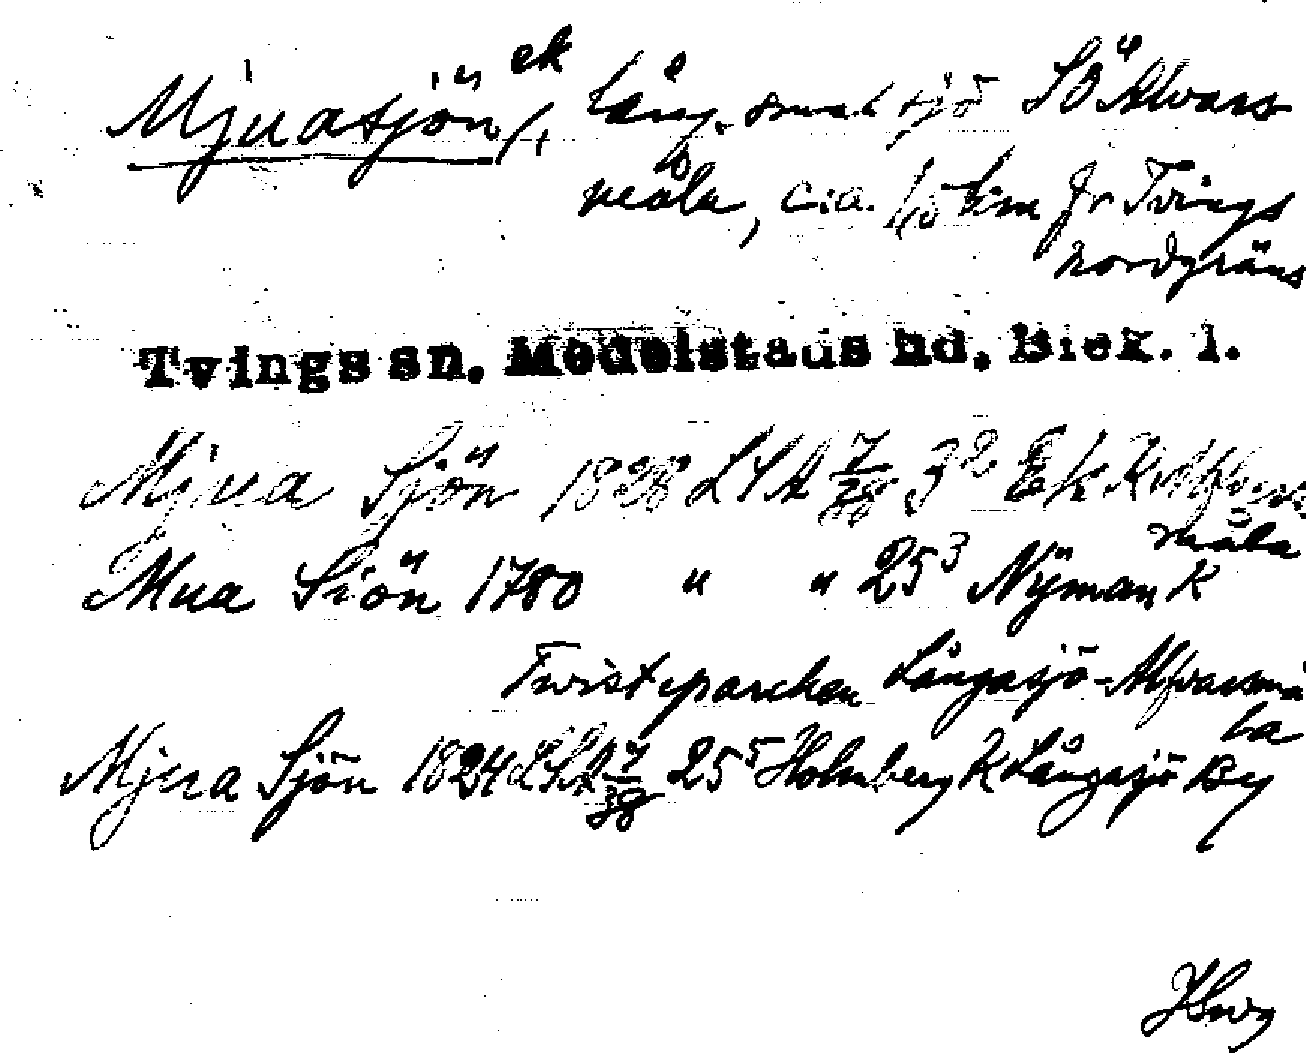 Mjuasjön ek lång, smal sjö SÖ Alvars
måla, c:a. 1,5 km fr Tvings
nordgräns
Tvings sn. Medelstads hd. Blek. l.
Mjua Sjön 1828 LSA 7/38 3² Ek K Alfvars
måla
Mua Siön 1780 " " 25³ Nyman K
Twisteparcken Långasjö-Alfvarsmå
la
Mjua Sjön 1824 LSA 7/38 25⁵ Holmberg K Långasjö By